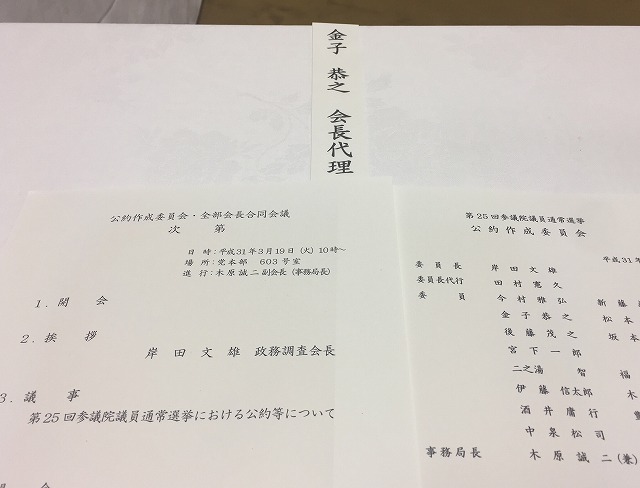 金子 恭之 会長代理
公約作成委員会・全部会長合同会議
次 第
日 時:平成31年3月19日(火)10時~
場 所:党本部 603号室
進 行:木原誠二副会長(事務局長)
1.開 会
2.挨 拶
岸 田 文 雄 政務調査会長
3.議 事
第25回参議院議員通常選挙における公約等について
会
第25回参議院議員通常選挙
公約作成委員会
平成31年
委 員 長 岸 田 文 雄
委員長代行 田 村 憲 久
委 員 今 村 雅 弘 新 藤
金 子 恭 之 松 本
後 藤 茂 之 坂 本
宮 下 一 郎
二之湯 智 福
伊 藤 信太郎 木
酒 井 庸 行
中 泉 松 司
事務局長 木 原 誠 二(兼)